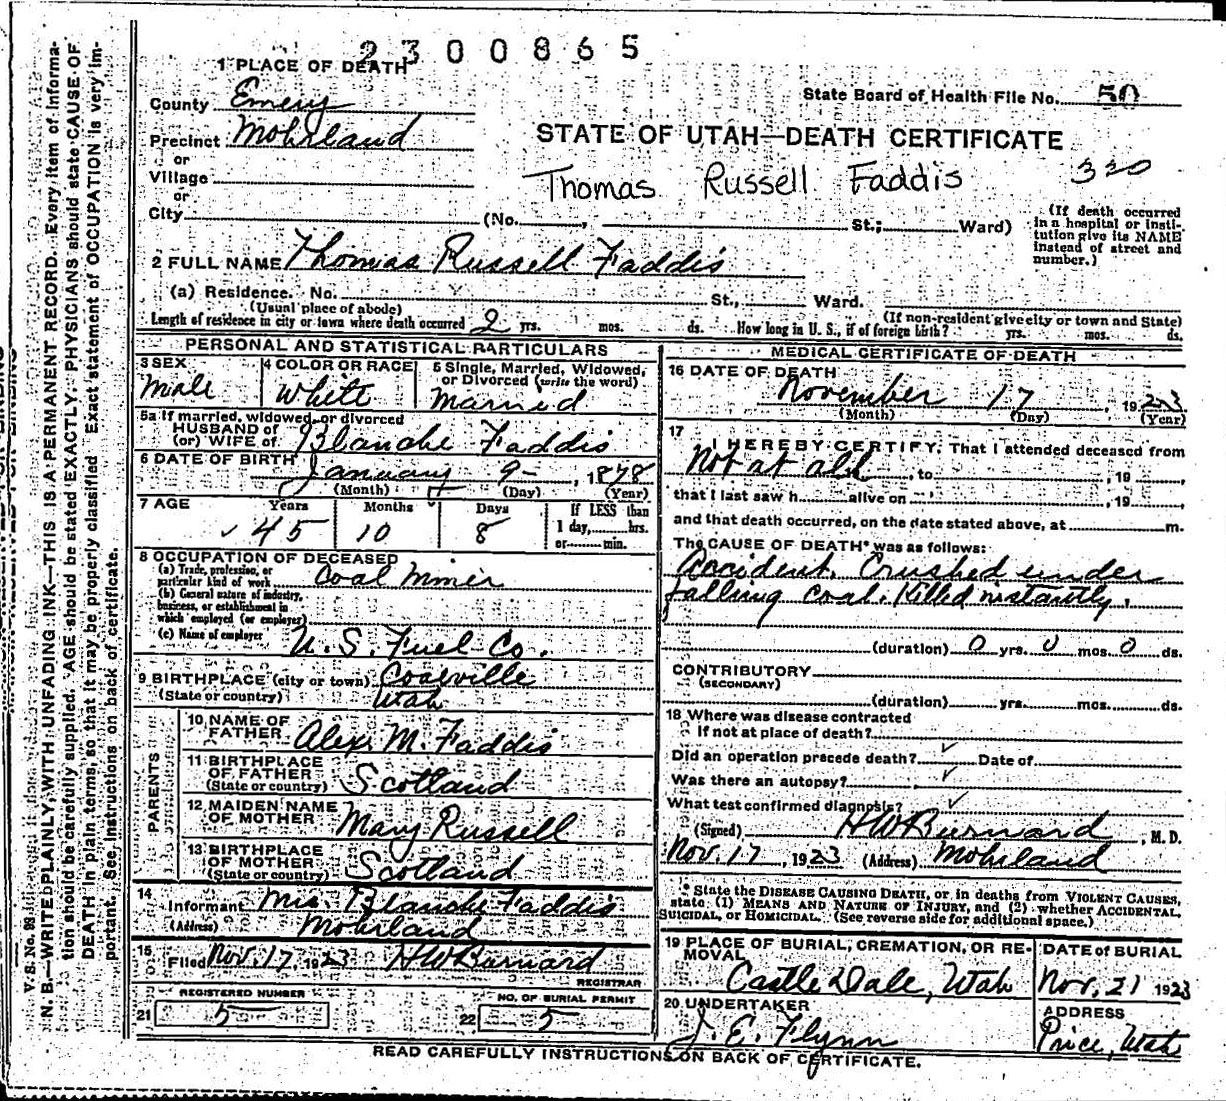 2300865
1 PLACE OF DEATH
County Emery
State Board of Health File No. 50
Precinct Mohrland
STATE OF UTAH—DEATH CERTIFICATE
or
Village
Thomas Russell Faddis 320
or
City (No. , St.; Ward)
(If death occurred in a hospital or insti-
tution give its NAME
instead of street and
number.)
2 FULL NAME Thomas Russell Faddis
(a) Residence. No. St., Ward.
(Usual place of abode) (If non-resident give city or town and State)
Length of residence in city or town where death occurred 2 yrs. mos. ds. How long in U. S., if of foreign birth? yrs. mos. ds.
PERSONAL AND STATISTICAL PARTICULARS
3 SEX
Male
4 COLOR OR RACE
White
5 Single, Married, Widowed,
or Divorced (write the word)
Married
5a If married, widowed, or divorced
HUSBAND of
(or) WIFE of Blanche Faddis
6 DATE OF BIRTH
January 9- , 1878
(Month) (Day) (Year)
7 AGE Years Months Days If LESS than
45 10 8 1 day, hrs.
or min.
8 OCCUPATION OF DECEASED
(a) Trade, profession, or
particular kind of work Coal Miner
(b) General nature of industry,
business, or establishment in
which employed (or employer)
(c) Name of employer U. S. Fuel Co.
9 BIRTHPLACE (city or town) Coalville
(State or country) Utah
PARENTS
10 NAME OF
FATHER Alex. M. Faddis
11 BIRTHPLACE
OF FATHER
(State or country) Scotland
12 MAIDEN NAME
OF MOTHER Mary Russell
13 BIRTHPLACE
OF MOTHER
(State or country) Scotland
14
Informant Mrs. Blanche Faddis
(Address) Mohrland
15
Filed Nov. 17, 1923 HW Barnard
REGISTRAR
REGISTERED NUMBER
21 5
NO. OF BURIAL PERMIT
22 5
MEDICAL CERTIFICATE OF DEATH
16 DATE OF DEATH
November 17 , 1923
(Month) (Day) (Year)
17
I HEREBY CERTIFY, That I attended deceased from
Not at all , to , 19
that I last saw h alive on , 19
and that death occurred, on the date stated above, at m.
The CAUSE OF DEATH* was as follows:
Accident. Crushed under
falling coal. Killed instantly.
(duration) 0 yrs. 0 mos. 0 ds.
CONTRIBUTORY
(SECONDARY)
(duration) yrs. mos. ds.
18 Where was disease contracted
If not at place of death?
Did an operation precede death? ✓ Date of
Was there an autopsy? ✓
What test confirmed diagnosis? ✓
(Signed) HW Barnard , M. D.
Nov. 17, 1923 (Address) Mohrland
* State the DISEASE CAUSING DEATH, or in deaths from VIOLENT CAUSES,
state (1) MEANS AND NATURE OF INJURY, and (2) whether ACCIDENTAL,
SUICIDAL, or HOMICIDAL. (See reverse side for additional space.)
19 PLACE OF BURIAL, CREMATION, OR RE-
MOVAL
Castle Dale, Utah
DATE of BURIAL
Nov. 21 1923
20 UNDERTAKER
J. E. Flynn
ADDRESS
Price, Utah
READ CAREFULLY INSTRUCTIONS ON BACK OF CERTIFICATE.
N. B.—WRITE PLAINLY, WITH UNFADING INK—THIS IS A PERMANENT RECORD. Every item of informa-
tion should be carefully supplied. AGE should be stated EXACTLY. PHYSICIANS should state CAUSE OF
DEATH in plain terms, so that it may be properly classified. Exact statement of OCCUPATION is very im-
portant. See instructions on back of certificate.